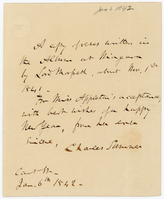 Jan 6 1842
A copy of verses written in
the Album at Niagara
by Lord Morpeth, about Nov. 1st
1841 -
For Miss Appleton's acceptance,
with best wishes of a happy
New Year, from her ever
friend,
Charles Sumner
Court St -
Jan. 6th 1842 -